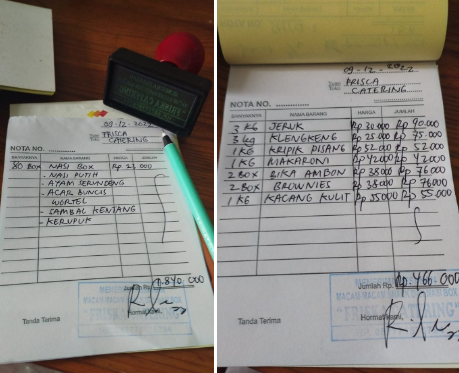 09-12-2022
Tuan
Toko
PRISCA
CATERING
NOTA NO.
BANYAKNYA NAMA BARANG HARGA JUMLAH
80 BOX NASI BOX Rp
- NASI PUTIH
- AYAM SERUNDENG
- ACAR BUNCIS
WORTEL
- SAMBAL KENTANG
- KERUPUK
Jumlah Rp. Rp. 840.000
Tanda Terima Hormat kami,
09-12-2022
Tuan
Toko
PRISCA
CATERING
NOTA NO.
BANYAKNYA NAMA BARANG HARGA JUMLAH
3 KG JERUK Rp 30.000 Rp 90.000
3 kg KLENGKENG Rp 25.000 Rp 75.000
1 KG KRIPIK PISANG Rp 52.000 Rp 52.000
1 KG MAKARONI Rp 42.000 Rp 42.000
2 BOX BIKA AMBON Rp 38.000 Rp 76.000
2 BOX BROWNIES Rp 38.000 Rp 76.000
1 KG KACANG KULIT Rp 55.000 Rp 55.000
Jumlah Rp. Rp. 466.000
MACAM-MACAM
Tanda Terima Hormat kami,